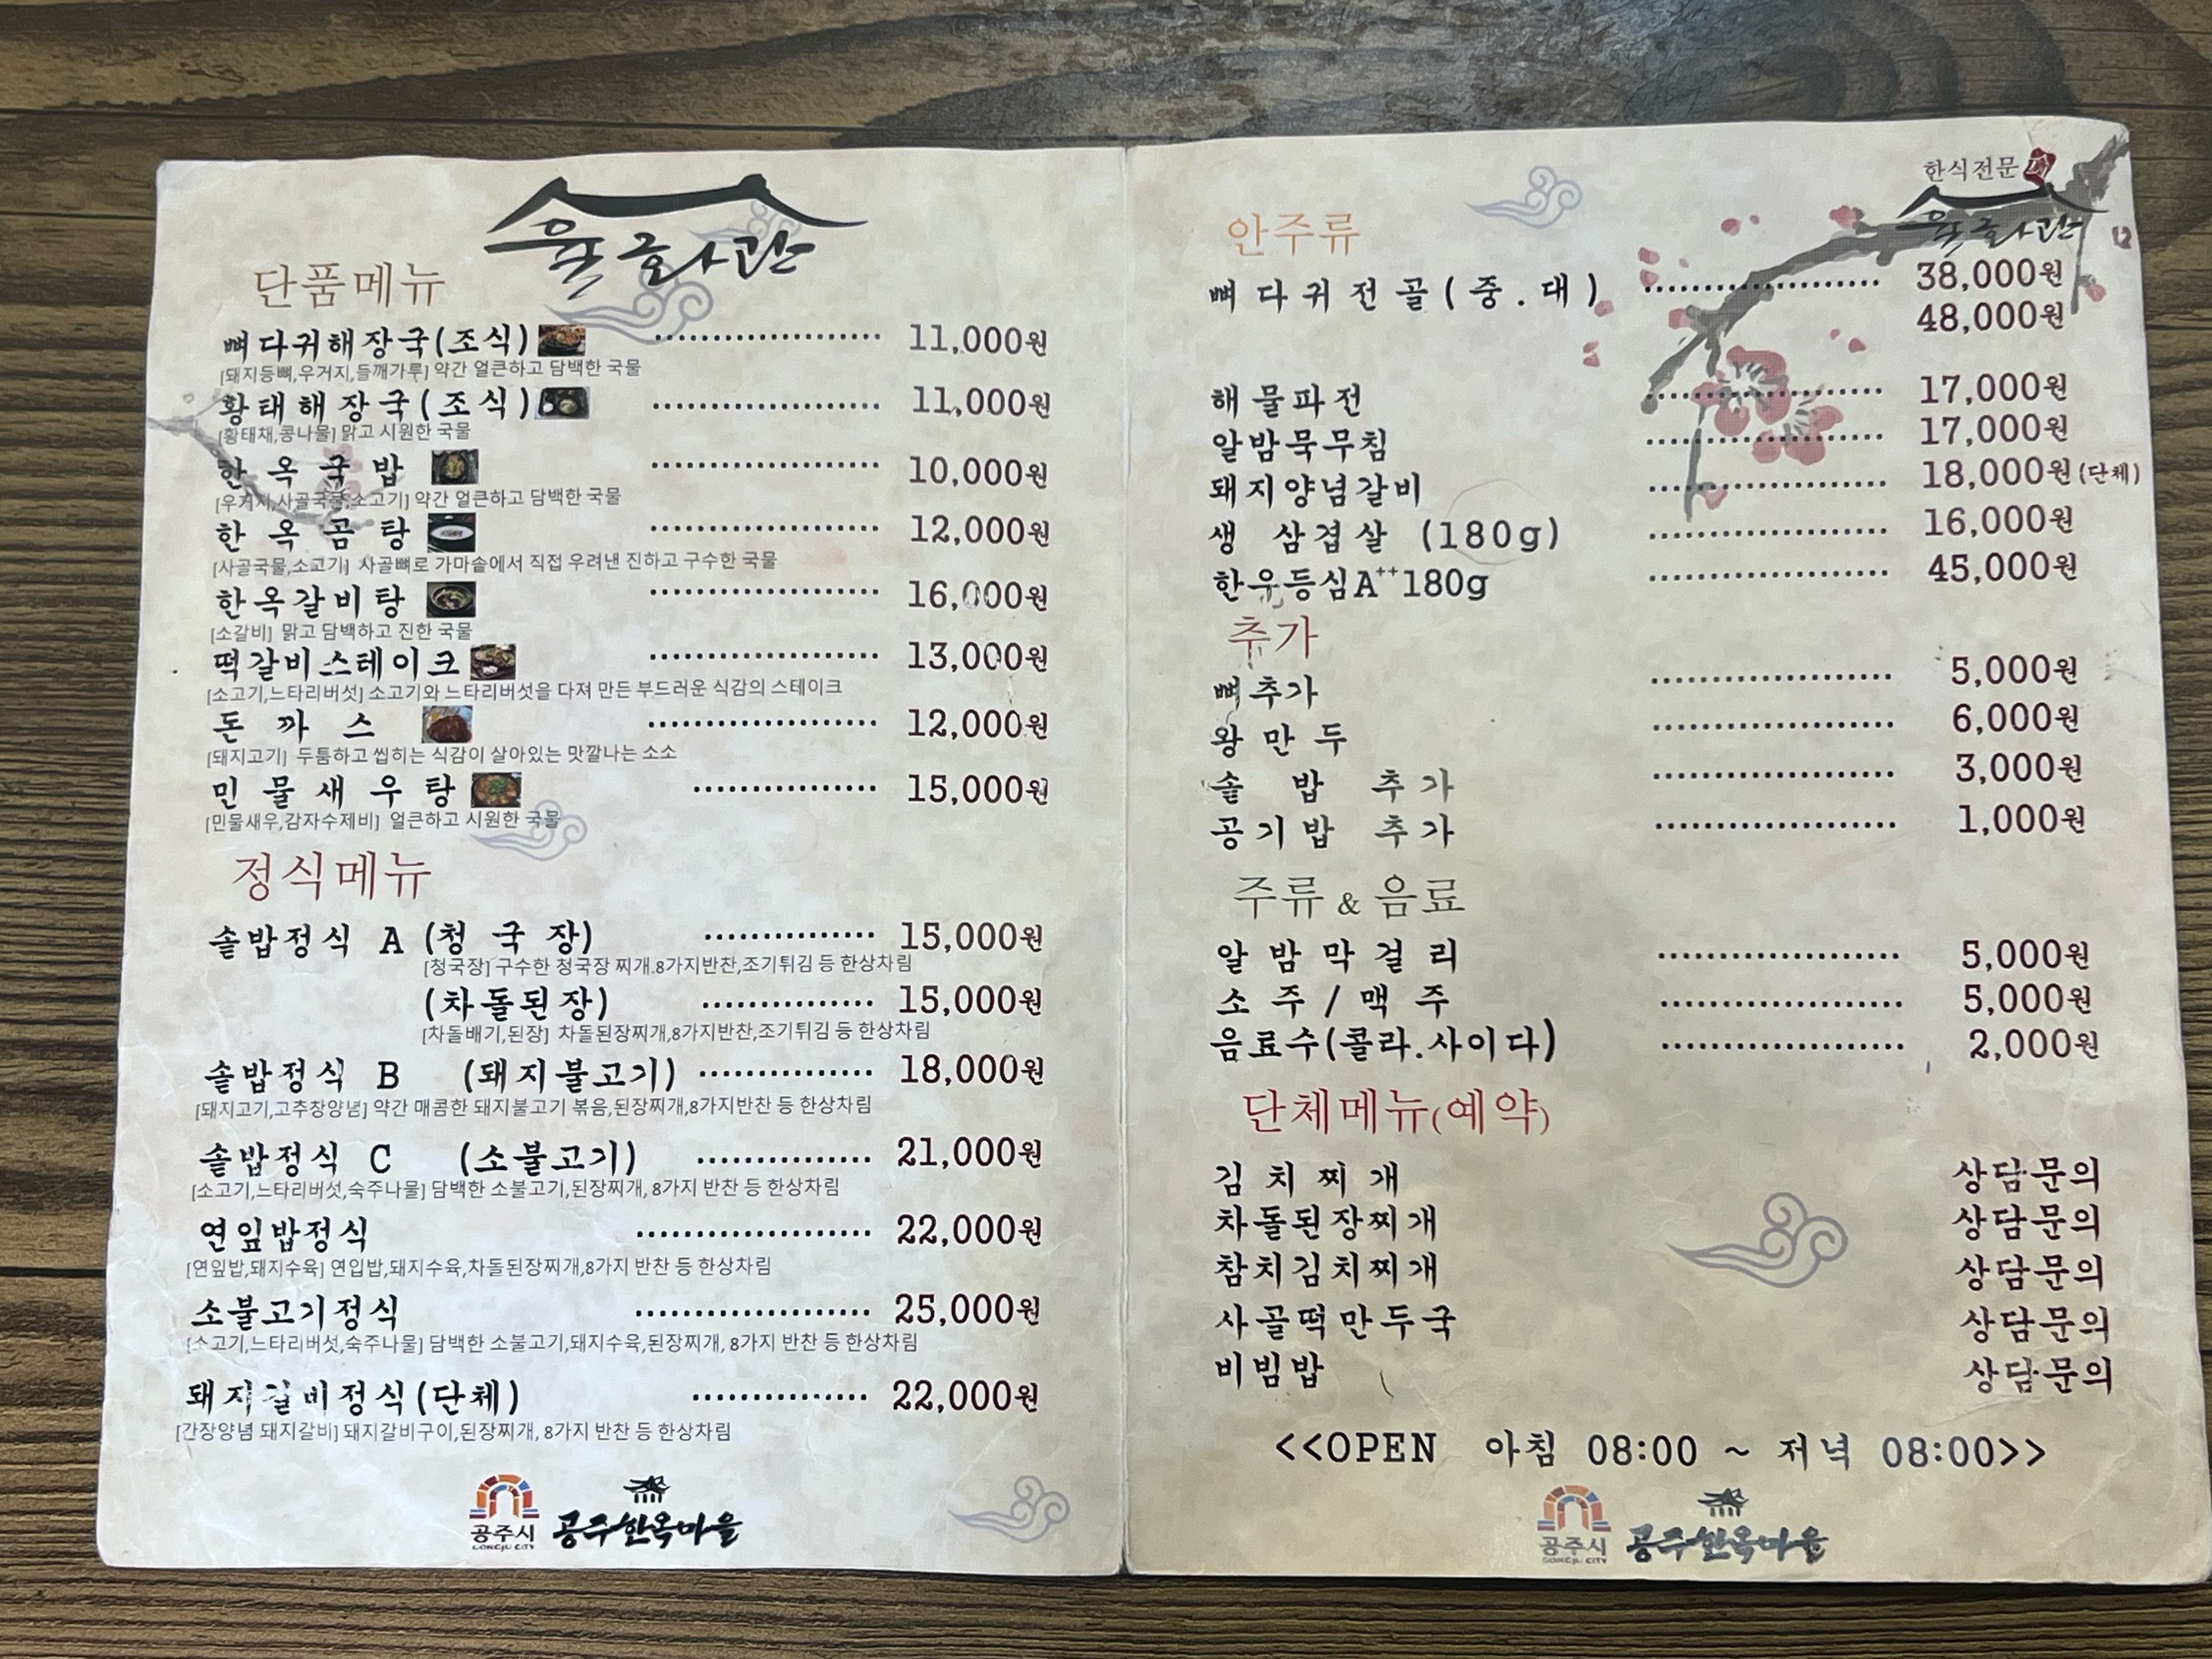 육화관
단품메뉴
뼈다귀해장국(조식) ........................ 11,000원
[돼지등뼈,우거지,들깨가루] 약간 얼큰하고 담백한 국물
황태해장국(조식) ........................ 11,000원
[황태채,콩나물] 맑고 시원한 국물
한옥국밥 ........................ 10,000원
[우거지,사골국물,소고기] 약간 얼큰하고 담백한 국물
한옥곰탕 ........................ 12,000원
[사골국물,소고기] 사골뼈로 가마솥에서 직접 우려낸 진하고 구수한 국물
한옥갈비탕 ........................ 16,000원
[소갈비] 맑고 담백하고 진한 국물
떡갈비스테이크 ........................ 13,000원
[소고기,느타리버섯] 소고기와 느타리버섯을 다져 만든 부드러운 식감의 스테이크
돈까스 ........................ 12,000원
[돼지고기] 두툼하고 씹히는 식감이 살아있는 맛깔나는 소소
민물새우탕 .................... 15,000원
[민물새우,감자수제비] 얼큰하고 시원한 국물
정식메뉴
솥밥정식 A (청국장) .................. 15,000원
[청국장] 구수한 청국장 찌개.8가지반찬,조기튀김 등 한상차림
(차돌된장) .................. 15,000원
[차돌배기,된장] 차돌된장찌개,8가지반찬,조기튀김 등 한상차림
솥밥정식 B (돼지불고기) .................. 18,000원
[돼지고기,고추장양념] 약간 매콤한 돼지불고기 볶음,된장찌개,8가지반찬 등 한상차림
솥밥정식 C (소불고기) .................. 21,000원
[소고기,느타리버섯,숙주나물] 담백한 소불고기,된장찌개, 8가지 반찬 등 한상차림
연잎밥정식 ........................ 22,000원
[연잎밥,돼지수육] 연입밥,돼지수육,차돌된장찌개,8가지 반찬 등 한상차림
소불고기정식 ........................ 25,000원
[소고기,느타리버섯,숙주나물] 담백한 소불고기,돼지수육,된장찌개, 8가지 반찬 등 한상차림
돼지갈비정식(단체) .................. 22,000원
[간장양념 돼지갈비] 돼지갈비구이,된장찌개, 8가지 반찬 등 한상차림
공주시 GONGJU CITY 공주한옥마을
한식전문
육화관
안주류
뼈다귀전골(중.대) ........................ 38,000원
48,000원
해물파전 ........................ 17,000원
알밤묵무침 ........................ 17,000원
돼지양념갈비 ........................ 18,000원(단체)
생 삼겹살 (180g) ........................ 16,000원
한우등심A++180g ........................ 45,000원
추가
뼈추가 ........................ 5,000원
왕만두 ........................ 6,000원
솥밥 추가 ........................ 3,000원
공기밥 추가 ........................ 1,000원
주류 & 음료
알밤막걸리 ........................ 5,000원
소주/맥주 ........................ 5,000원
음료수(콜라.사이다) ........................ 2,000원
단체메뉴(예약)
김치찌개 상담문의
차돌된장찌개 상담문의
참치김치찌개 상담문의
사골떡만두국 상담문의
비빔밥 상담문의
<<OPEN 아침 08:00 ~ 저녁 08:00>>
공주시 GONGJU CITY 공주한옥마을